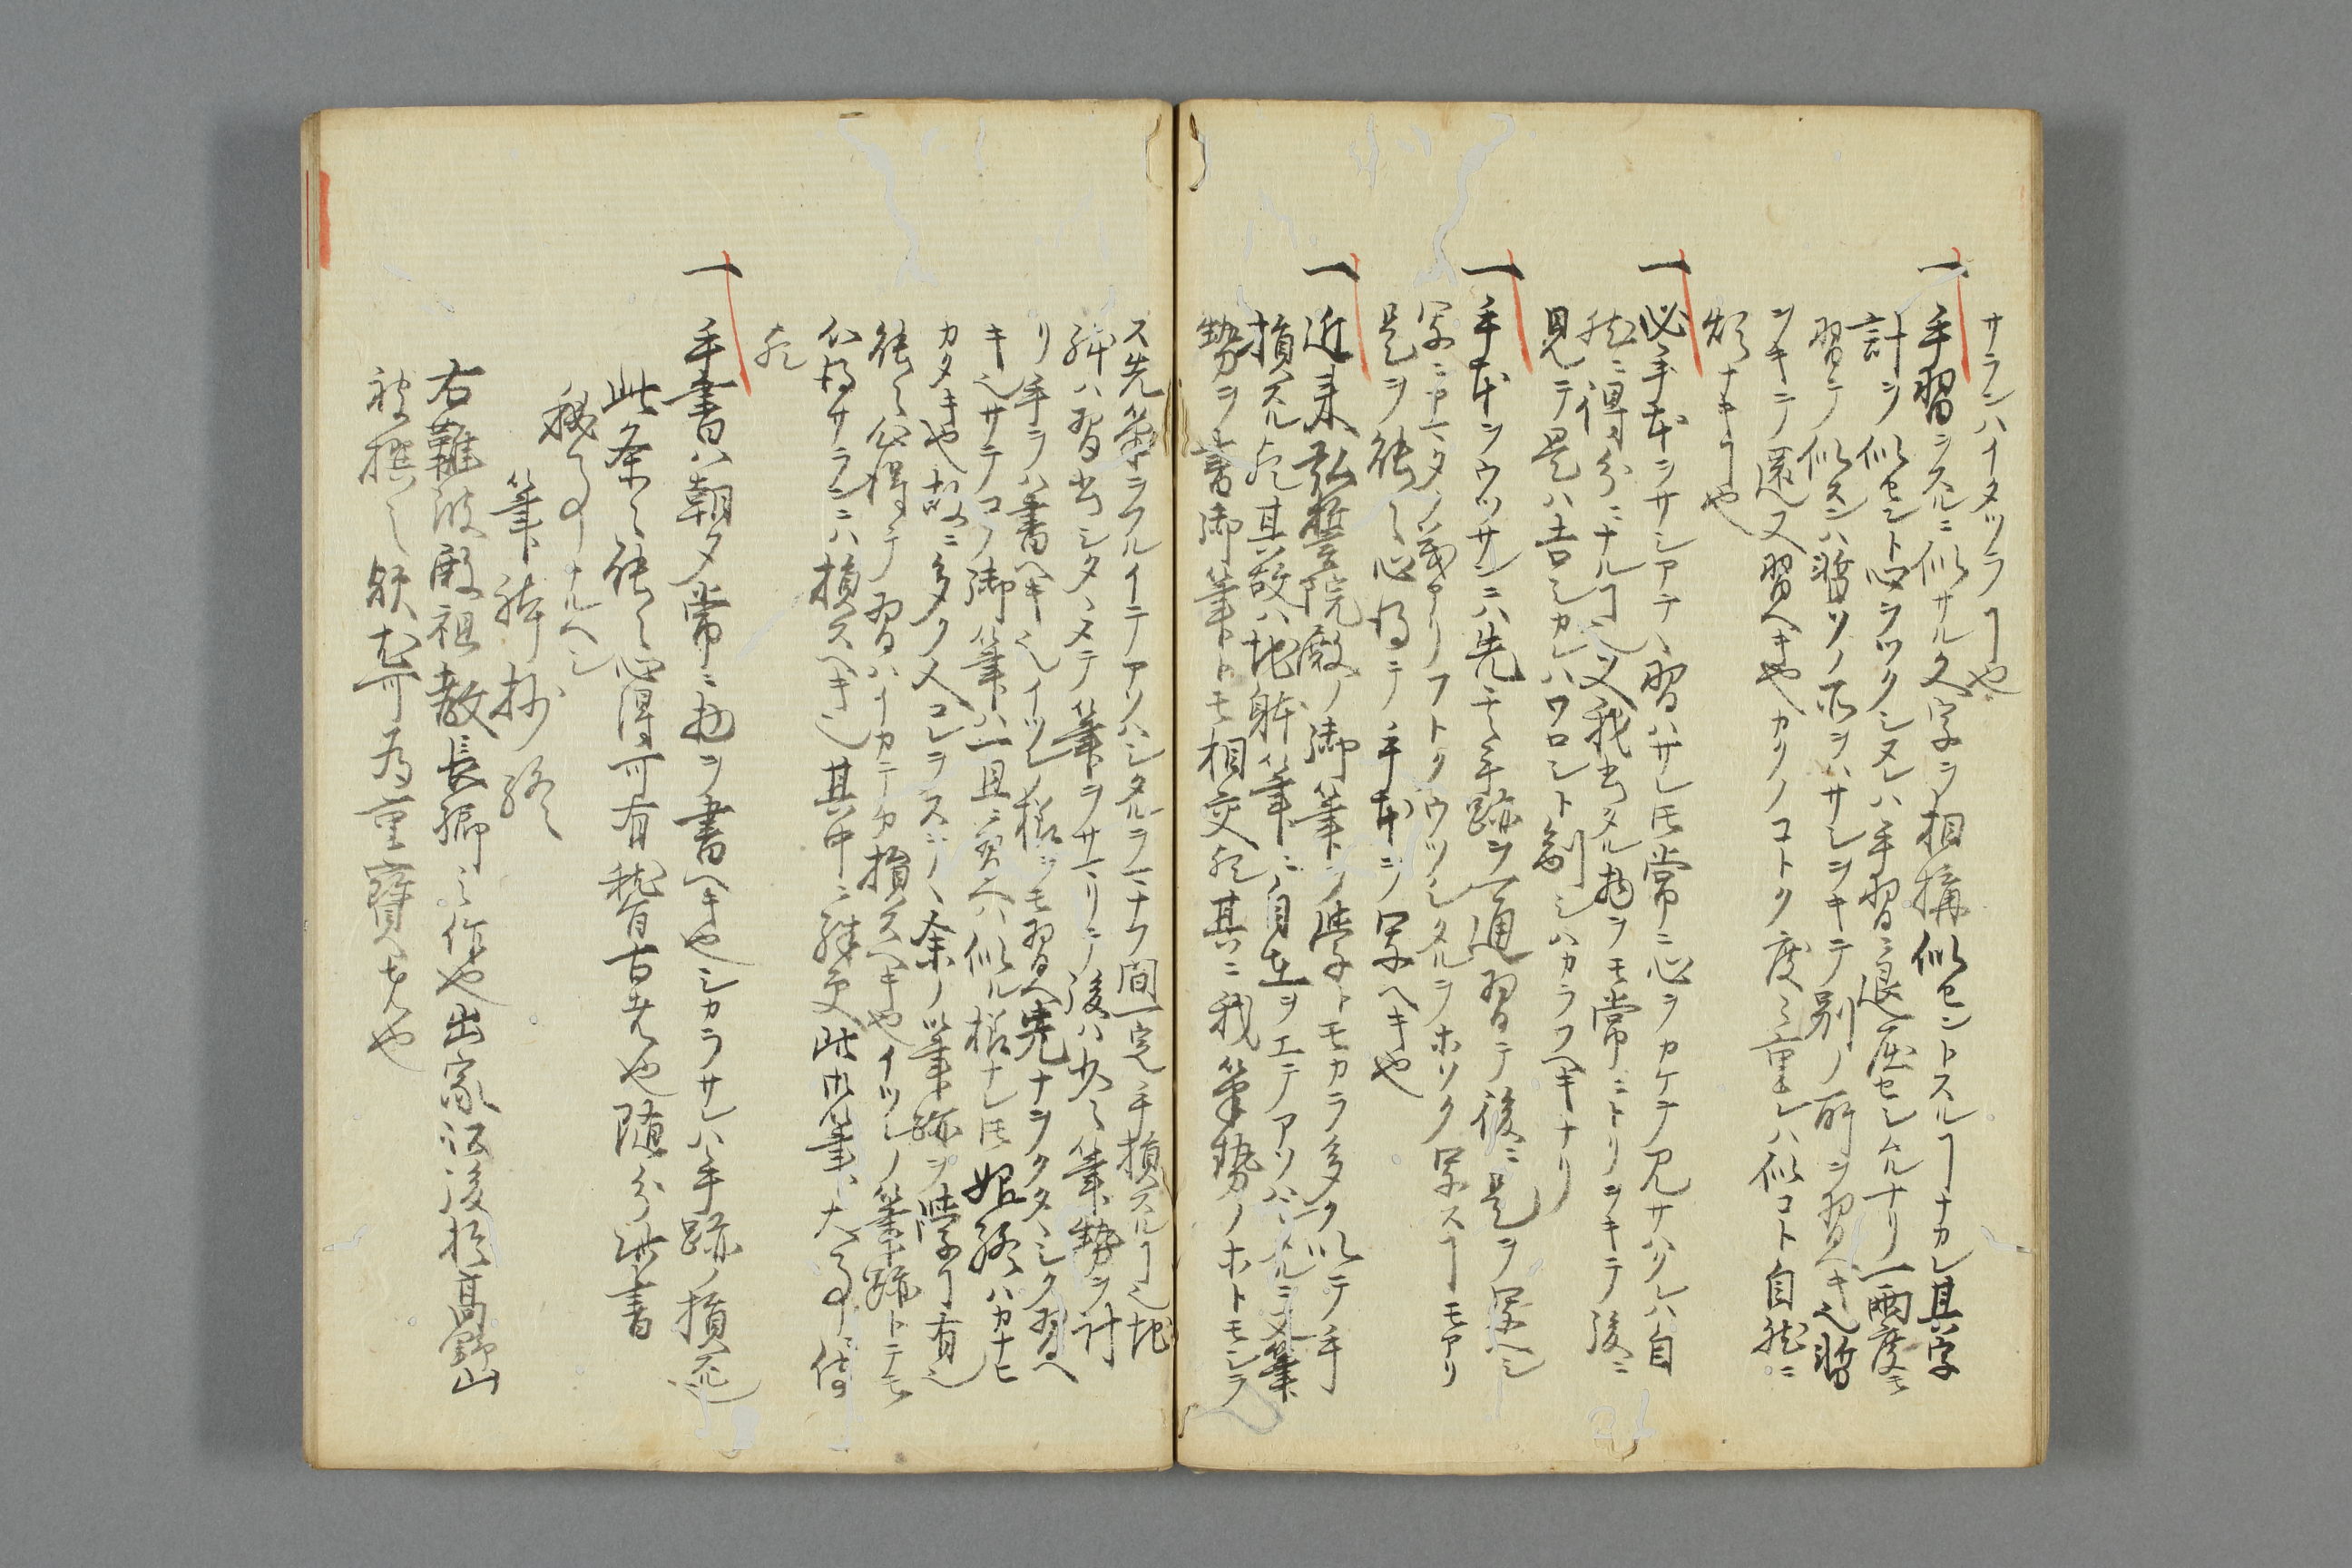 サランハイタツラヿ也
一手習ヲスルニ似サル文字ヲ相構似セントスルヿナカレ其字
計ヲ似セント心ヲツクシヌレハ手習ニ退屈セシムルナリ一両度モ
習テ似スンハ暫ソノ所ヲハサシヲキテ別ノ所ヲ習ヘキ也暫
ヲキテ還又習ヘキ也カクノコトク度々重レハ似コト自然ニ
煩ナキヿ也
一必手本ヲサシアテハ習ハサレトモ常ニ心ヲカケテ見サハクレハ自
然ニ得分ニナルヿ也又我書タル物ヲモ常ニトリヲキテ後ニ
見テ是ハ吉シカレハワロシト剖シハカラフヘキナリ
一手本ヲウツサンニハ先其手跡ヲ一通習テ後ニ是ヲ写ヘシ
写ニアマタノ義アリフトクウツシタルヲホソク写スヿモアリ
是ヲ能々心得テ手本ヲ写ヘキ也
一近来弘誓院殿ノ御筆ヲ学トモカラ多ク以テ手
損スル歟其故ハ地躰筆ニ自在ヲエテアソハシタルニ又筆
勢ヲ書御筆トモ相交歟其ニ我筆勢ノホトモシラ
ス先筆ヲフルイテアソハシタルヲマナフ間一定手損スルヿ也地
躰ハ習出シタヽメテ筆ヲサマリテ後ハ少々筆勢ヲ計
リ手ヲハ書ヘキ也イツレノ様ヲモ習ヘ先ナヲクタヽシク習ヘ
キ也サテコノ御筆ハ一旦ニ学ヘハ似ル様ナレトモ始終ハカナヒ
カタキ也故ニ多ク又コレヲステヽ余ノ筆跡ヲ学ヿ有也
能々心得テ習ハイカテカ損スヘキ也イツレノ筆跡トテモ
心得サランニハ損スヘキ也其中ニ殊更此御筆大事ニ侍
歟
一手書ハ朝夕常ニ物ヲ書ヘキ也シカラサレハ手跡ノ損也
此条々能々心得可有稽古者也随分此書
秘事ナルヘシ
筆躰抄終
右難波殿祖教長卿之作也出家以後於高野山
被撰之歟尤可為重寶者也